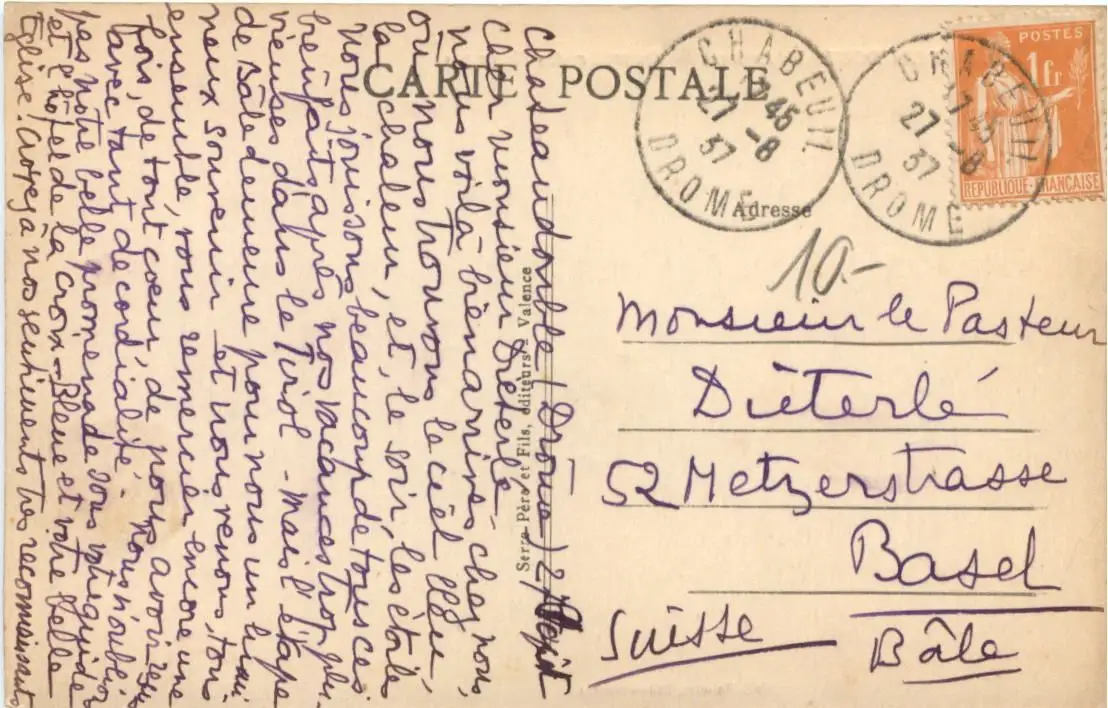 CARTE POSTALE
Adresse
CHABEUIL
DROME
27 -8
37
CHABEUIL
DROME
27 -8
37
POSTES
1fr
REPUBLIQUE FRANÇAISE
10.-
Monsieur le Pasteur
Dieterlé
52 Metzerstrasse
Basel
Bâle
Suisse
Serre Père et Fils, éditeurs - Valence
Chateaudouble (Drôme) 27
Cher monsieur Dieterlé
nous voilà bien arrivés chez nous,
où nous trouvons le ciel bleu,
la chaleur, et, le soir, les étoiles
Nous jouissons beaucoup de tous ces
bienfaits après nos vacances trop plu-
vieuses dans le Tirol - mais l'étape
de Bâle demeure pour nous un lumi
neux souvenir et nous venons, tous
ensemble, vous remercier encore une
fois, de tout coeur, de nous avoir reçu
avec tant de cordialité. Nous n'oublions
pas notre belle promenade sous votre guide
et l'hôtel de la Croix-Bleue et votre belle
Eglise. Croyez à nos sentiments très reconnaissants